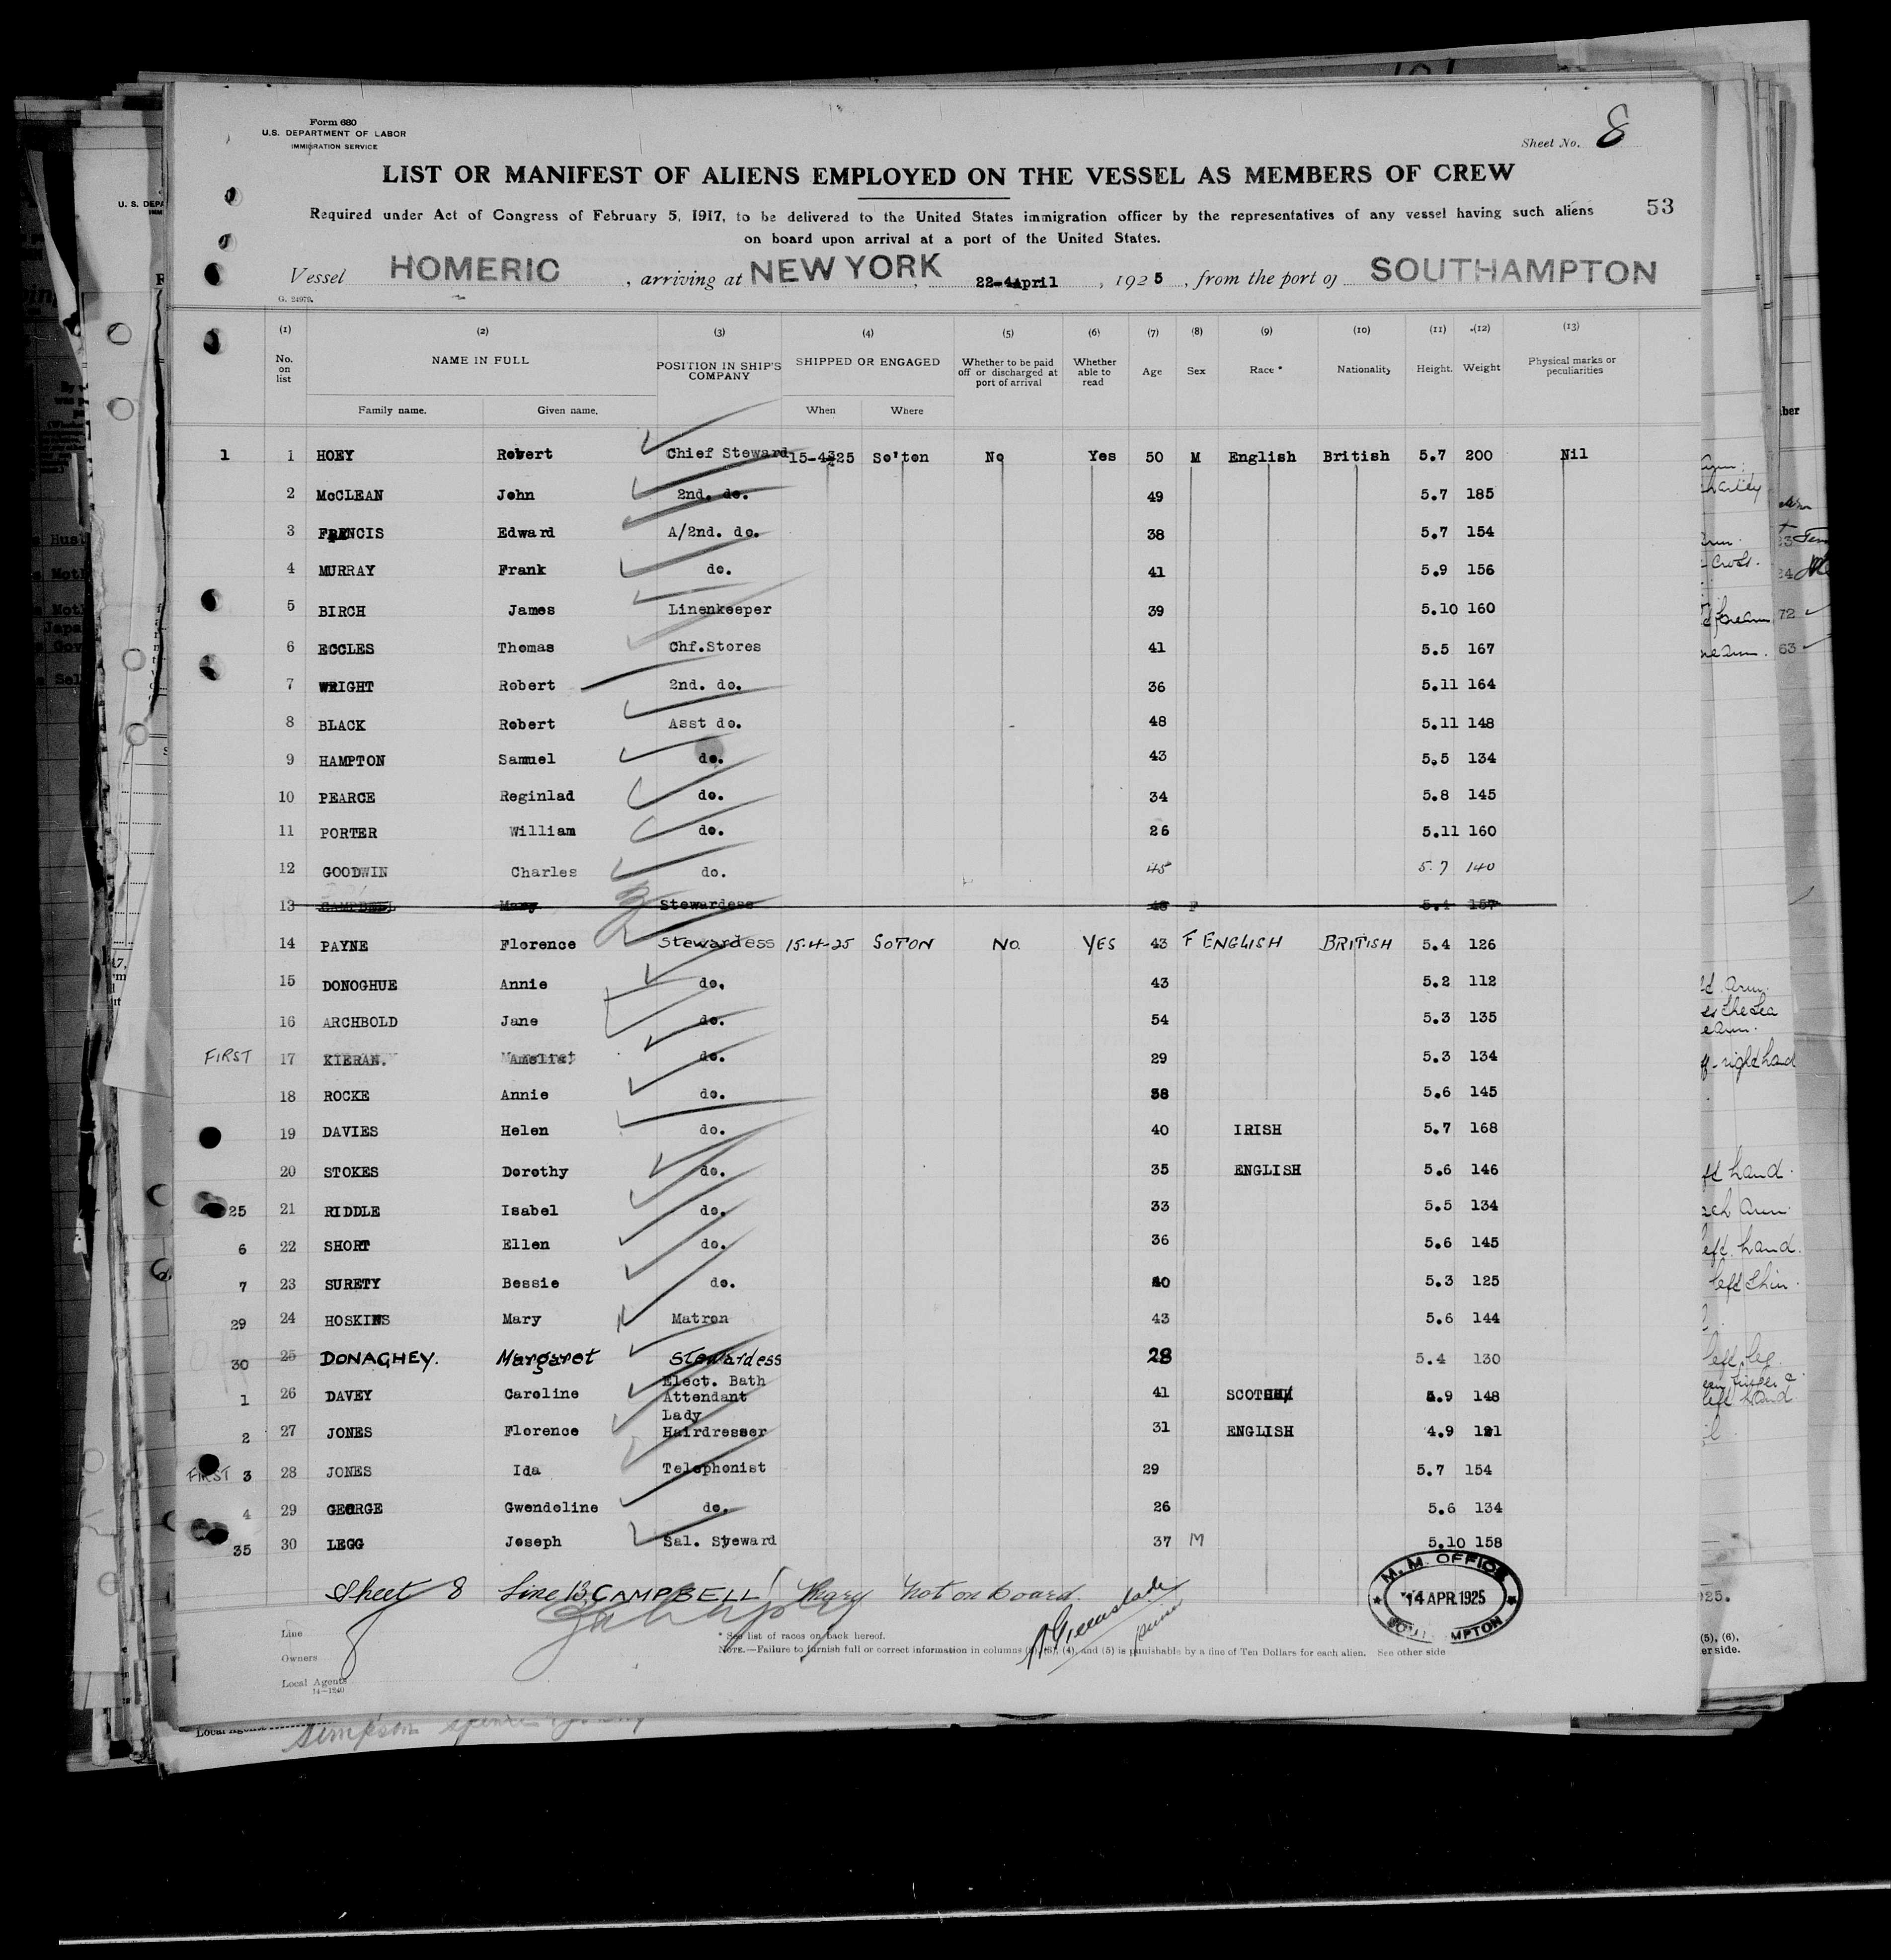 Form 680
U.S. DEPARTMENT OF LABOR
IMMIGRATION SERVICE
Sheet No. 8
LIST OR MANIFEST OF ALIENS EMPLOYED ON THE VESSEL AS MEMBERS OF CREW
Required under Act of Congress of February 5, 1917, to be delivered to the United States immigration officer by the representatives of any vessel having such aliens
53
on board upon arrival at a port of the United States.
Vessel HOMERIC , arriving at NEW YORK 22-4April , 1925 , from the port of SOUTHAMPTON
G. 24970.
(1) (2) (3) (4) (5) (6) (7) (8) (9) (10) (11) (12) (13)
No. on list NAME IN FULL POSITION IN SHIP'S COMPANY SHIPPED OR ENGAGED Whether to be paid off or discharged at port of arrival Whether able to read Age Sex Race * Nationality Height. Weight Physical marks or peculiarities
Family name. Given name. When Where
1 1 HOEY Robert Chief Steward 15-4-25 So'ton No Yes 50 M English British 5.7 200 Nil
2 McCLEAN John 2nd. do. 49 5.7 185
3 FRANCIS Edward A/2nd. do. 38 5.7 154
4 MURRAY Frank do. 41 5.9 156
5 BIRCH James Linenkeeper 39 5.10 160
6 ECCLES Thomas Chf.Stores 41 5.5 167
7 WRIGHT Robert 2nd. do. 36 5.11 164
8 BLACK Robert Asst do. 48 5.11 148
9 HAMPTON Samuel do. 43 5.5 134
10 PEARCE Reginlad do. 34 5.8 145
11 PORTER William do. 26 5.11 160
12 GOODWIN Charles do. 45 5.7 140
13 CAMPBELL Mary Stewardess 48 F 5.4 157
14 PAYNE Florence Stewardess 15.4-25 SOTON NO. YES 43 F ENGLISH BRITISH 5.4 126
15 DONOGHUE Annie do. 43 5.2 112
16 ARCHBOLD Jane do. 54 5.3 135
FIRST 17 KIERAN. do. 29 5.3 134
18 ROCKE Annie do. 38 5.6 145
19 DAVIES Helen do. 40 IRISH 5.7 168
20 STOKES Dorothy do. 35 ENGLISH 5.6 146
25 21 RIDDLE Isabel do. 33 5.5 134
6 22 SHORT Ellen do. 36 5.6 145
7 23 SURETY Bessie do. 40 5.3 125
29 24 HOSKINS Mary Matron 43 5.6 144
30 25 DONAGHEY. Margaret Stewardess 28 5.4 130
1 26 DAVEY Caroline Elect. Bath Attendant 41 SCOTCH 5.9 148
2 27 JONES Florence Lady Hairdresser 31 ENGLISH 4.9 121
FIRST 3 28 JONES Ida Telephonist 29 5.7 154
4 29 GEORGE Gwendoline do. 26 5.6 134
35 30 LEGG Joseph Sal. Steward 37 M 5.10 158
Sheet 8 Line 13, CAMPBELL, Mary not on board.
M. M. OFFICE
14 APR. 1925
SOUTHAMPTON
Line
Owners
Local Agents
14-1240
* See list of races on back hereof.
NOTE.—Failure to furnish full or correct information in columns (3), (4), and (5) is punishable by a fine of Ten Dollars for each alien. See other side